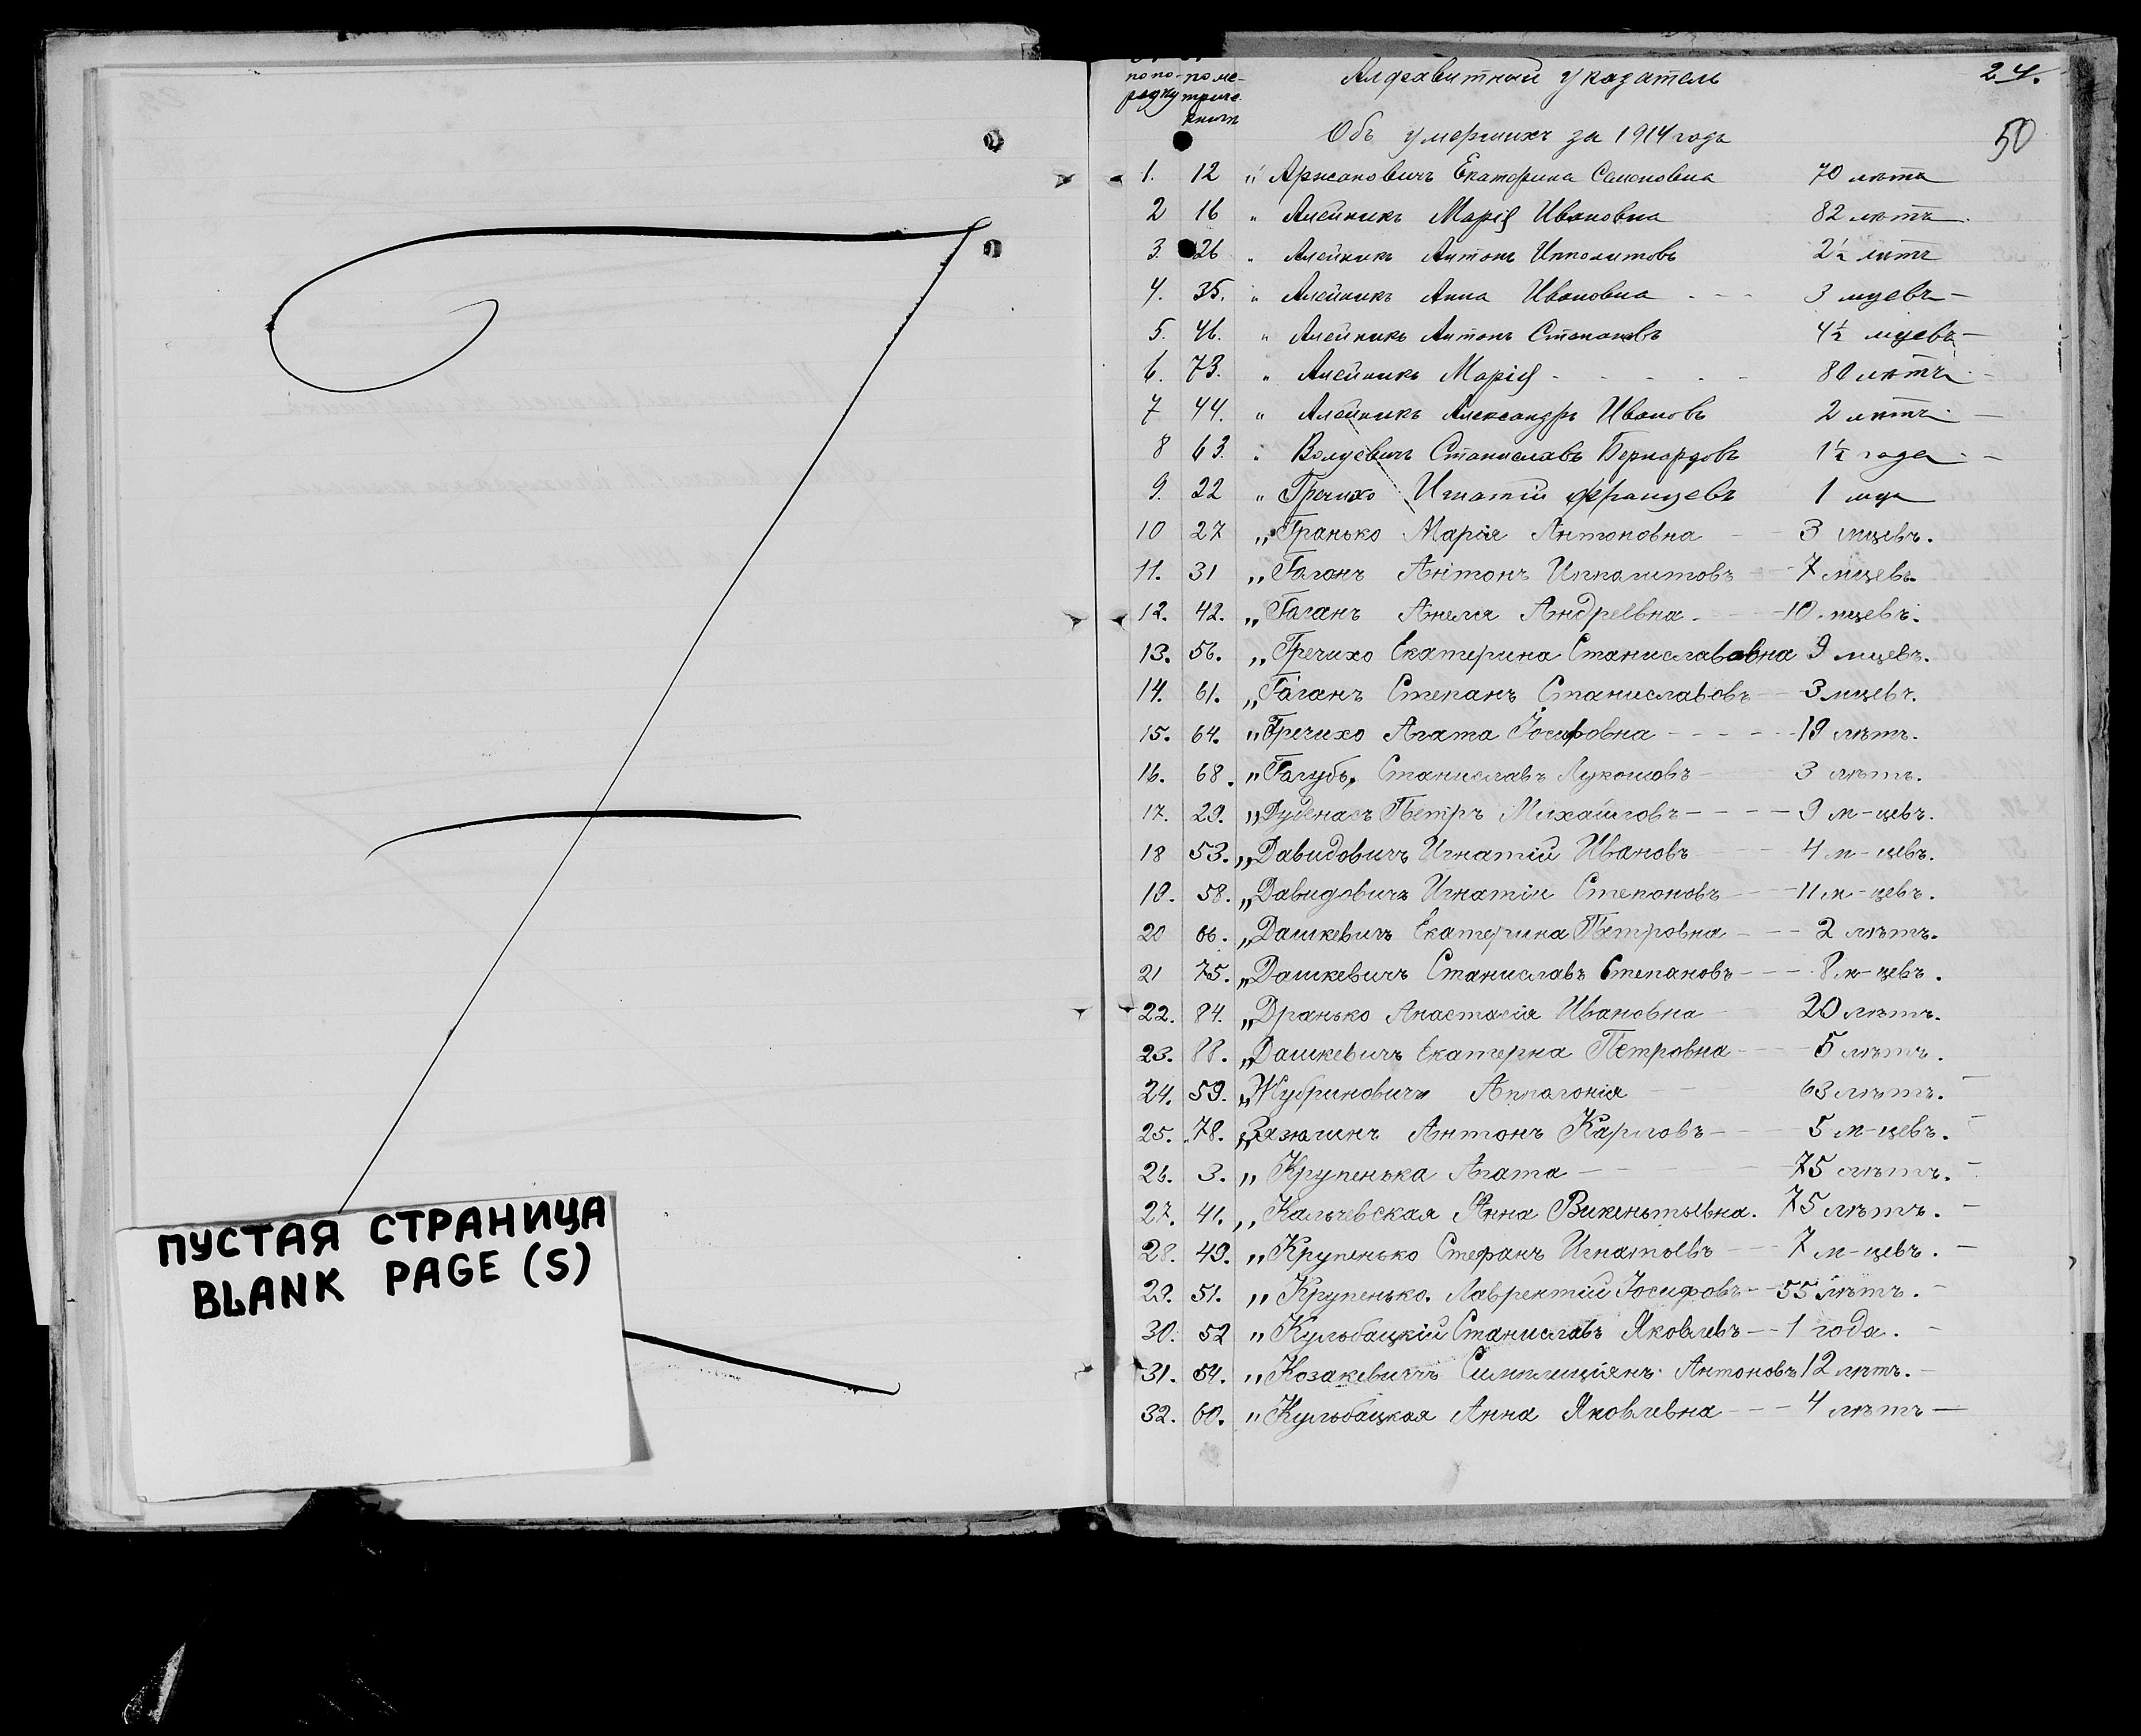 ПУСТАЯ СТРАНИЦА
BLANK PAGE (S)
по по- по ме-
рядку триче.
книги
Алфавитный указатель 24.
Объ умершихъ за 1914 годъ 50
1. 12 „ Аржановичъ Екатерина Семеновна 70 лѣтъ
2 16 „ Алейникъ Марія Ивановна 82 лѣтъ.
3. 26 „ Алейникъ Антонъ Ипполитовъ 2½ лѣтъ
4. 35. „ Алейникъ Анна Ивановна - - - 3 мцевъ -
5. 46. „ Алейникъ Антонъ Степановъ 4½ мцевъ -
6. 73. „ Алейникъ Марія - - - - - 80 лѣтъ -
7 44. „ Алейникъ Александръ Ивановъ 2 лѣтъ. -
8 63. „ Волуевичъ Станиславъ Бернардовъ 1½ года. -
9. 22 „ Гречихо Игнатій Францевъ 1 мца
10 27 „ Гранько Марія Антоновна - - 3 мцевъ.
11. 31 „ Гаганъ Антонъ Ипполитовъ - 7 мцевъ.
12. 42. „ Гаганъ Анеля Андреевна. - - 10. мцевъ.
13. 56. „ Гречихо Екатерина Станиславовна 9 мцевъ.
14. 61. „ Гаганъ Степанъ Станиславовъ - 3 мцевъ.
15. 64. „ Гречихо Агата Іосифовна - - - - - 19 лѣтъ.
16. 68. „ Голубь, Станиславъ Лукашовъ - 3 лѣтъ.
17. 29. „ Дуденасъ Петръ Михайловъ - - - - 9 м-цевъ.
18 53. „ Давидовичъ Игнатій Ивановъ - - 4 м-цевъ.
19. 58. „ Давидовичъ Игнатій Степановъ - - 11 м-цевъ.
20 66. „ Дашкевичъ Екатерина Петровна - - - 2 лѣтъ.
21 75. „ Дашкевичъ Станиславъ Степановъ - - - 8 м-цевъ.
22. 84. „ Дранько Анастасія Ивановна - 20 лѣтъ.
23. 88. „ Дашкевичъ Екатерна Петровна - - - 5 лѣтъ.
24. 59. „ Жубриновичъ Апполонія - - 63 лѣтъ. -
25. 78. „ Зязюлинъ Антонъ Карловъ - - 5 м-цевъ. -
26. 3. „ Крупенька Агата - - - - 75 лѣтъ. -
27. 41. „ Кальчевская Анна Викентьевна. 75 лѣтъ. -
28. 49. „ Крупенько Стефанъ Игнатьевъ - - 7 м-цевъ. -
29. 51. „ Крупенько. Лаврентій Іосифовъ - - 55 лѣтъ. -
30. 52 „ Кульбацкій Станиславъ Яковлевъ - - 1 года. -
31. 54. „ Козакевичъ Симплиціянъ Антоновъ 12 лѣтъ. -
32. 60. „ Кульбацкая Анна Яковлевна - - - 4 лѣтъ -